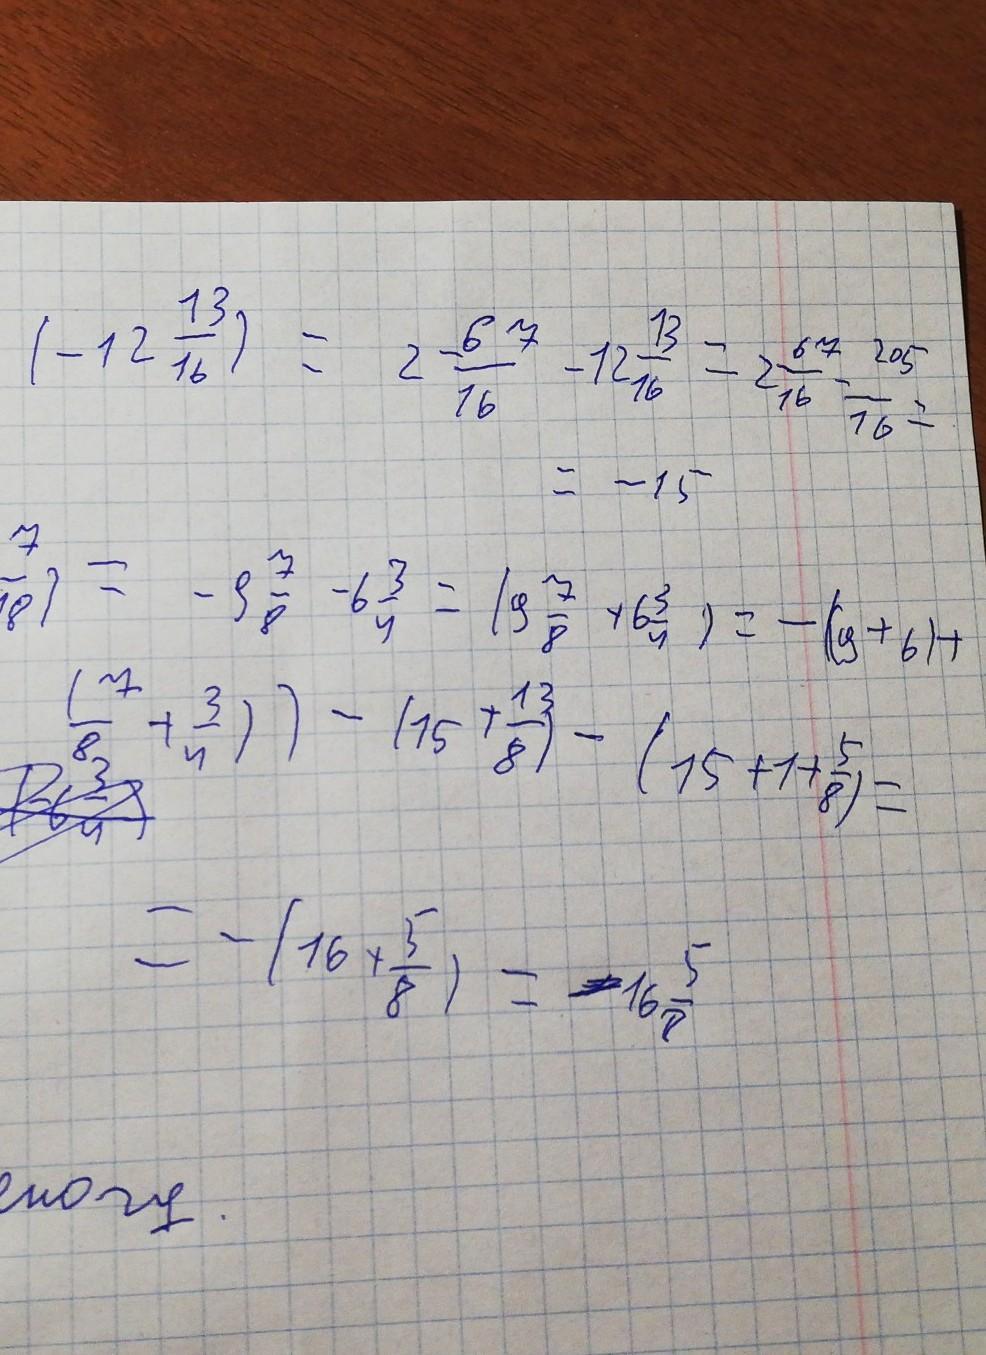 (-12 13/16) = 2 -67/16 - 12 13/16 = 2 67/16 - 205/16 =
= -15
7/18) = -9 7/8 - 6 3/4 = (9 7/8 + 6 3/4) = -(9 + 6) +
(7/8 + 3/4)) - (15 + 13/8) - (15 + 1 + 5/8) =
= -(16 + 5/8) = -16 5/8